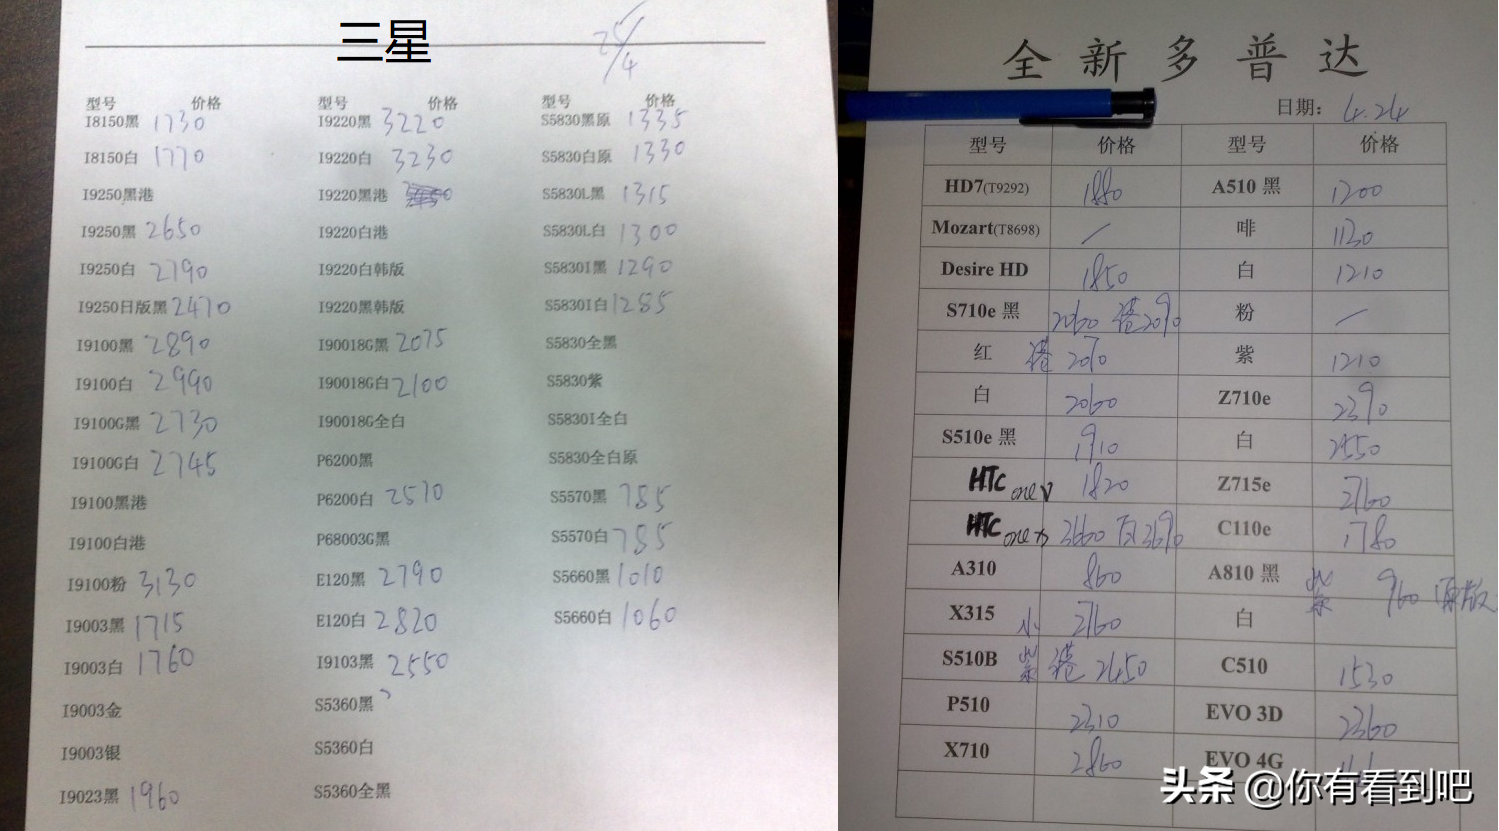 三星
25/4
型号 价格 型号 价格 型号 价格
I8150黑 1730 I9220黑 3220 S5830黑原 1335
I8150白 1770 I9220白 3230 S5830白原 1330
I9250黑港 I9220黑港 S5830L黑 1315
I9250黑 2650 I9220白港 S5830L白 1300
I9250白 2790 I9220白韩版 S5830I黑 1290
I9250日版黑 2470 I9220黑韩版 S5830I白 1285
I9100黑 2890 I90018G黑 2075 S5830全黑
I9100白 2990 I90018G白 2100 S5830紫
I9100G黑 2730 I90018G全白 S5830I全白
I9100G白 2745 P6200黑 S5830全白原
I9100黑港 P6200白 2570 S5570黑 785
I9100白港 P68003G黑 S5570白 785
I9100粉 3130 E120黑 2790 S5660黑 1010
I9003黑 1715 E120白 2820 S5660白 1060
I9003白 1760 I9103黑 2550
I9003金 S5360黑
I9003银 S5360白
I9023黑 1960 S5360全黑
全新多普达
日期: 4.24
型号 价格 型号 价格
HD7(T9292) 1880 A510 黑 1200
Mozart(T8698) / 啡 1130
Desire HD 1850 白 1210
S710e 黑 2060 港2090 粉 /
红 港 2070 紫 1210
白 2060 Z710e 2390
S510e 黑 1910 白 2550
HTC one V 1820 Z715e 2760
HTC one X 3660 白3690 C110e 1780
A310 860 A810 黑 紫 960 原版
X315 小 2760 白
S510B 紫 港 2450 C510 1530
P510 2310 EVO 3D 2360
X710 2860 EVO 4G
头条 @你有看到吧